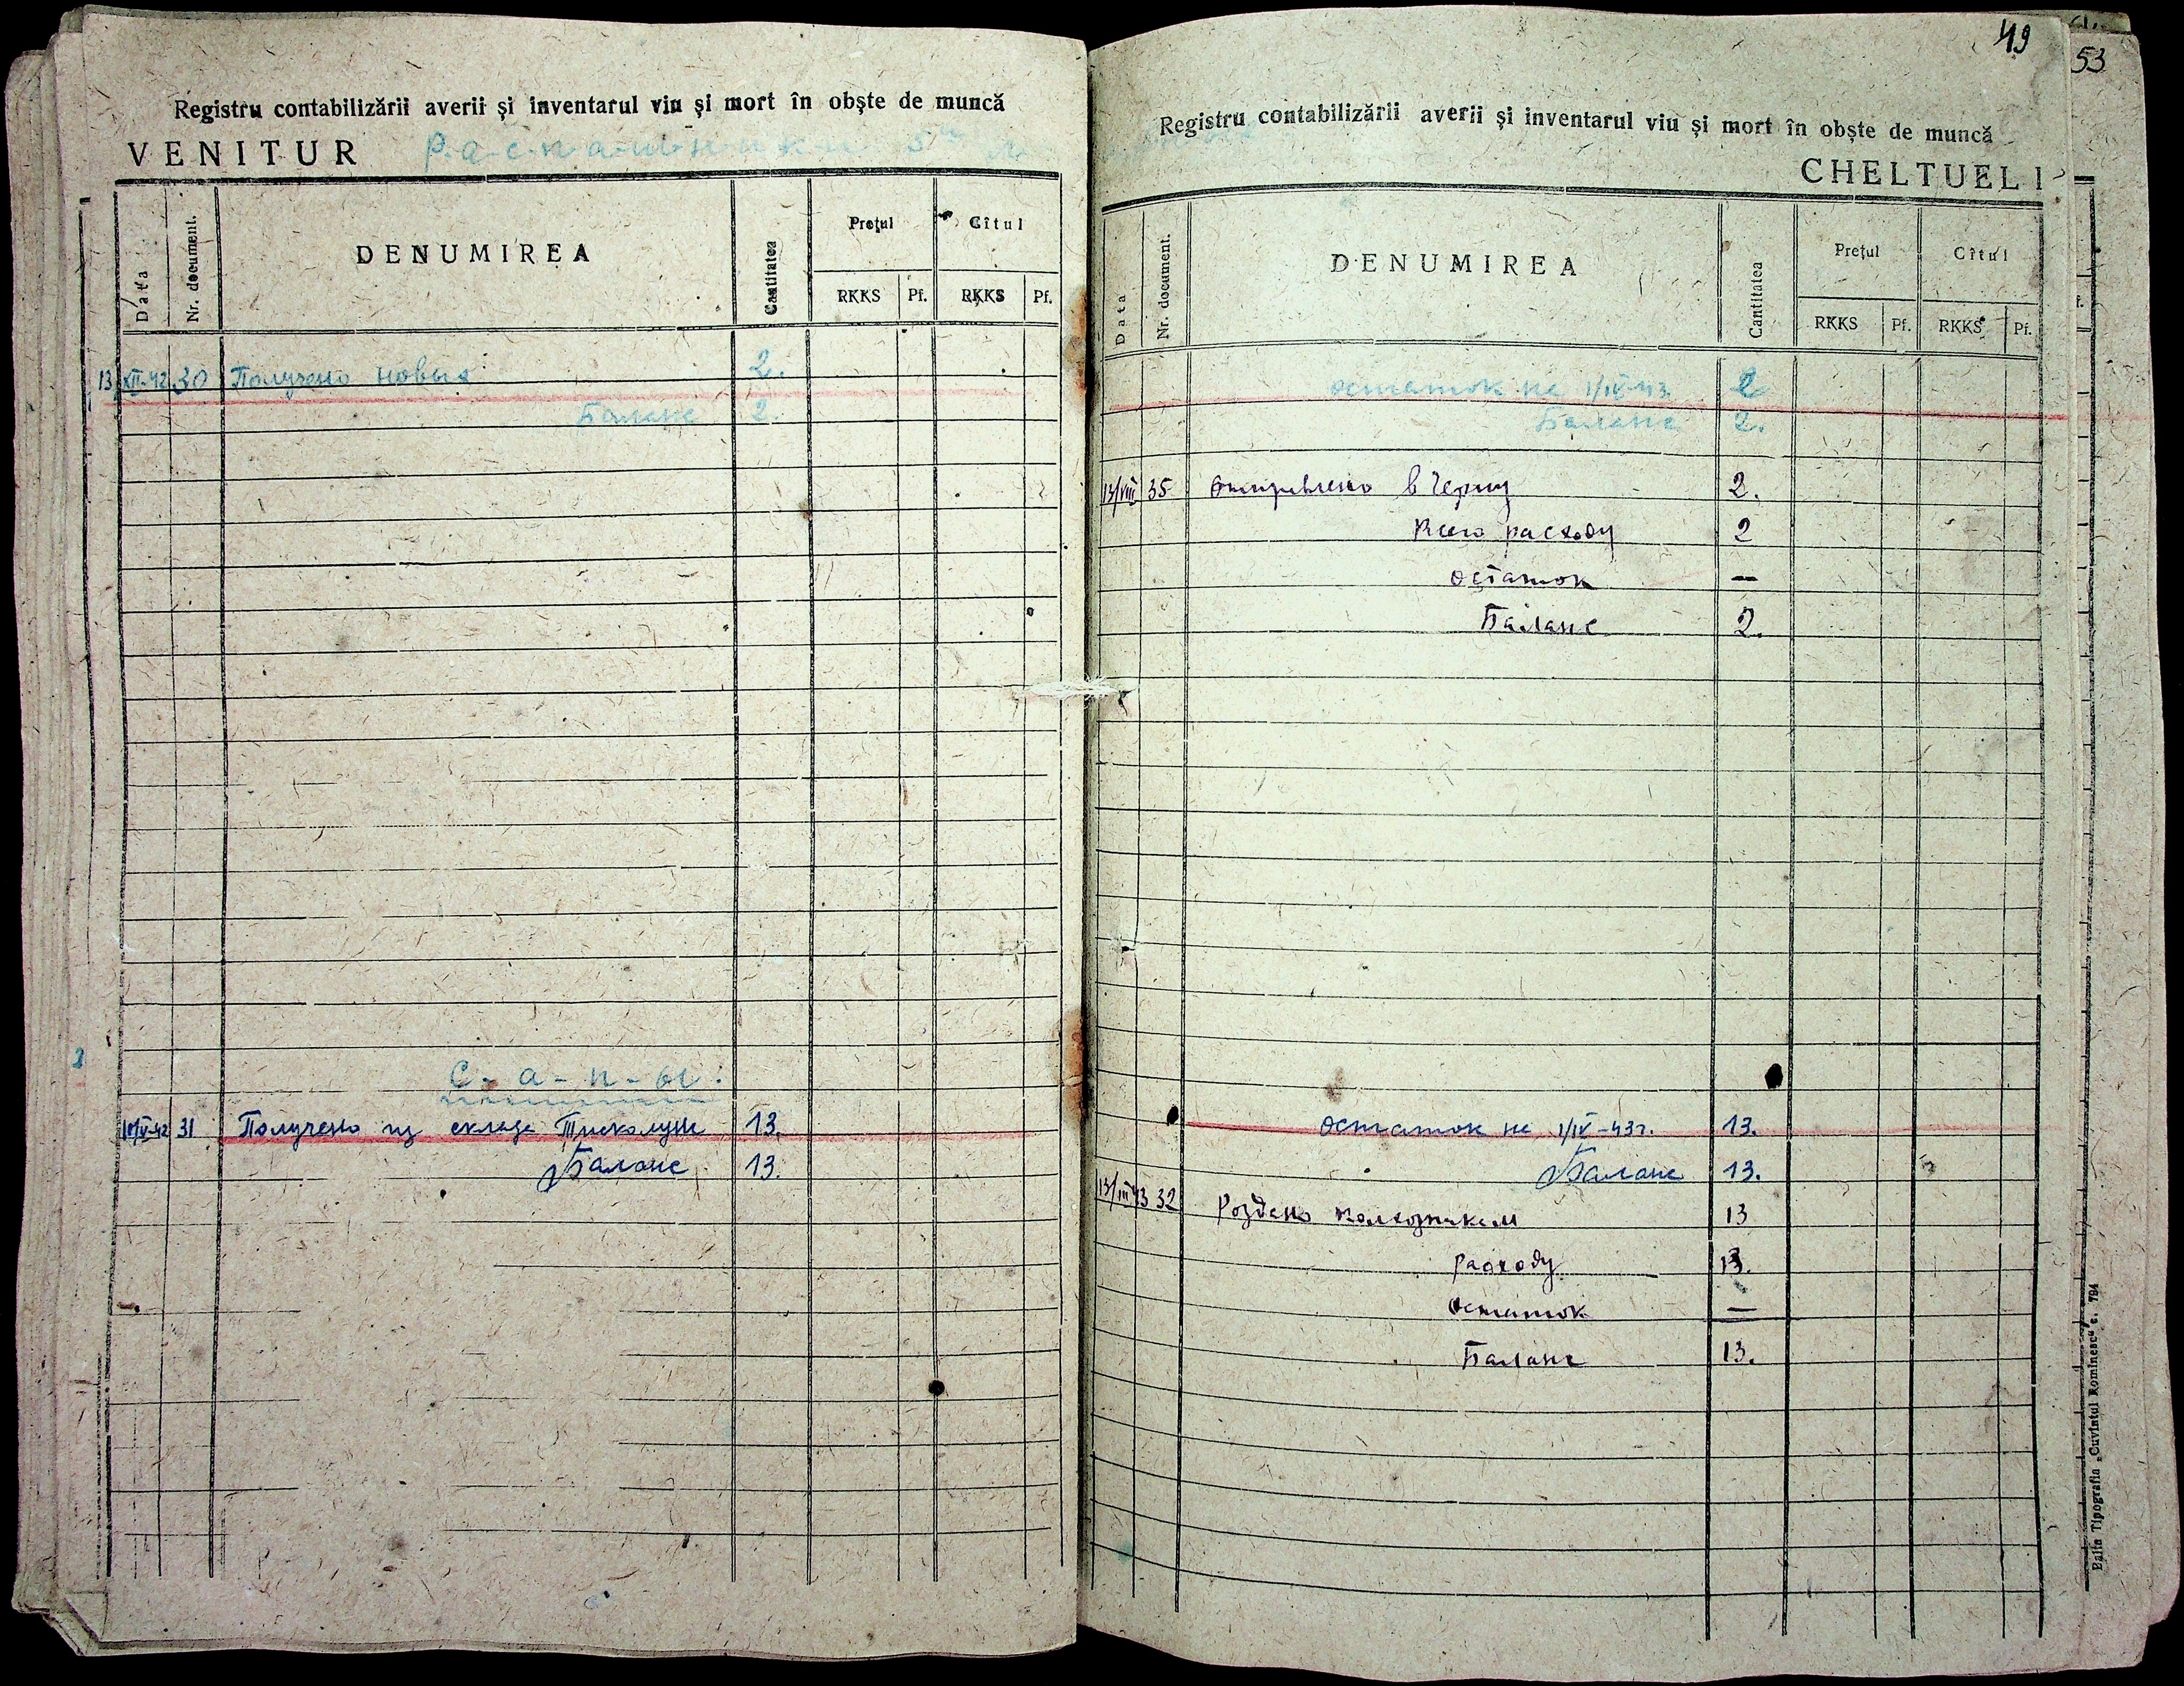 Registru contabilizării averii și inventarul viu și mort în obște de muncă
VENITUR
Р-а-с-п-а-ш-н-и-к-и 5
Data
Nr. document.
DENUMIREA
Cantitatea
Prețul
Cîtul
RKKS
Pf.
RKKS
Pf.
13/XII-42 30 Получено новых 2.
Баланс 2.
С-а-п-ы.
10/V-42 31 Получено из склада Тисколунг 13.
Баланс 13.
49
53
Registru contabilizării averii și inventarul viu și mort în obște de muncă
CHELTUELI
Data
Nr. document.
DENUMIREA
Cantitatea
Prețul
Cîtul
RKKS
Pf.
RKKS
Pf.
остаток на 1/IV-43. 2
Баланс 2.
13/VIII 35 Отправлено в 2.
Всего расходу 2
остаток —
Баланс 2.
остаток на 1/IV-43г. 13.
Баланс 13.
13/III 43 32 Роздано колхозникам 13
расходу 13.
остаток —
Баланс 13.
Balta Tipografia „Cuvintul Rominesc“ c. 794